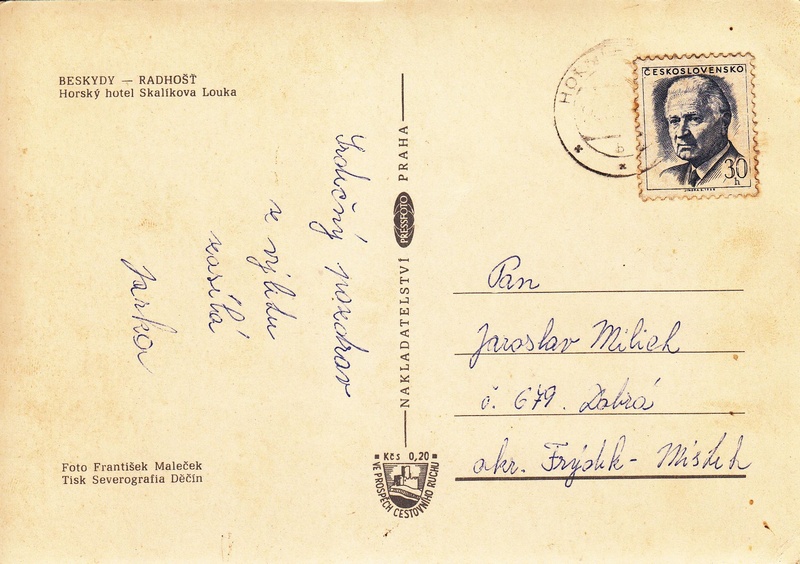 BESKYDY — RADHOŠŤ
Horský hotel Skalíkova Louka
Srdečný pozdrav
z výletu
zasílá
Jarka
Foto František Maleček
Tisk Severografia Děčín
NAKLADATELSTVÍ PRESSFOTO PRAHA
Kčs 0,20
VE PROSPĚCH CESTOVNÍHO RUCHU
ČESKOSLOVENSKO
30
h
Pan
Jaroslav Milich
č. 679. Dobrá
okr. Frýdek - Místek